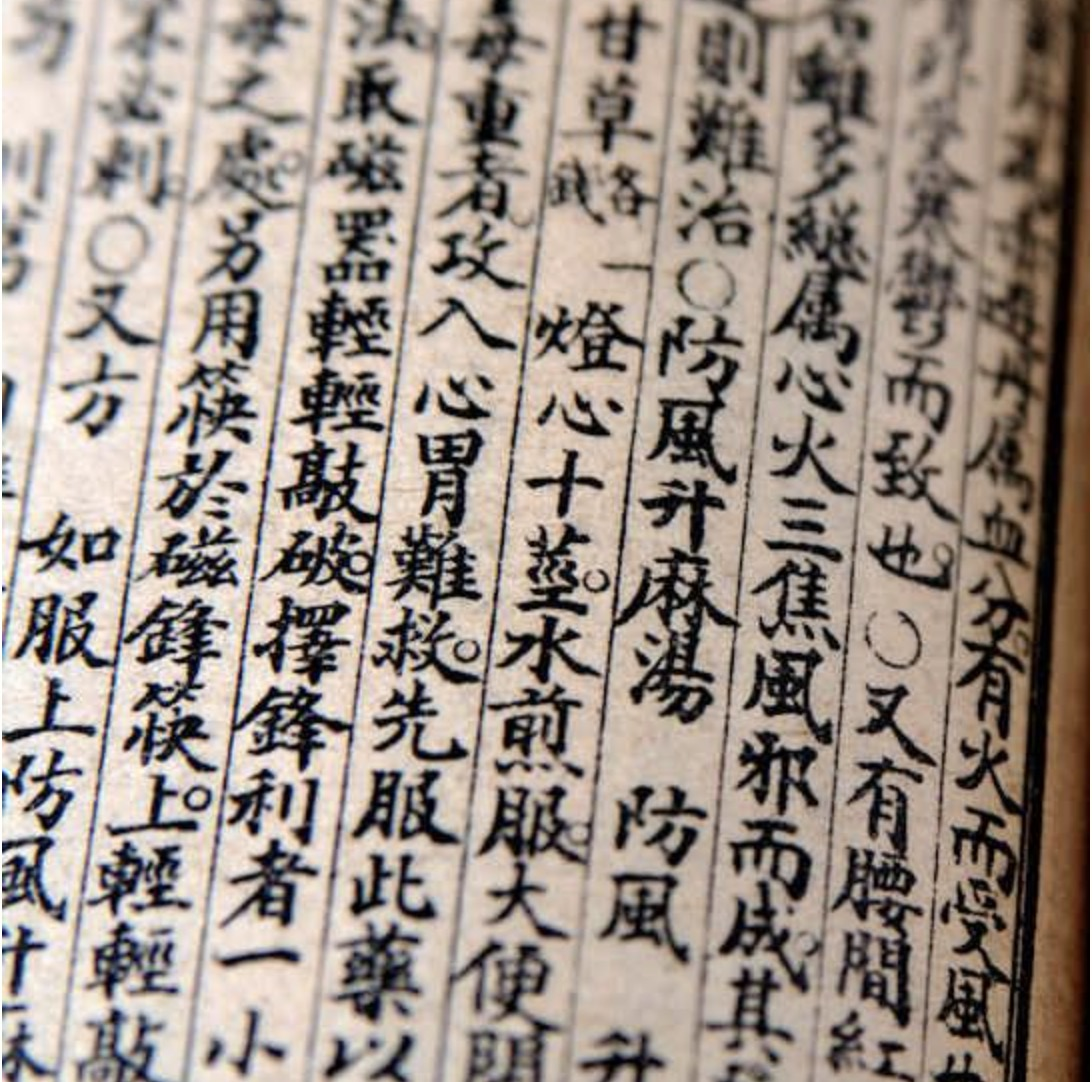 丹属血分有火而受風
寒鬱而致也○又有腰間紅
雖多總属心火三焦風邪而成其
則難治○防風升麻湯　防風　升
甘草各一錢　燈心十莖水煎服大便閉
毒重者攻入心胃難救先服此藥以
法取磁器輕輕敲破擇鋒利者一小
毒之處另用筷於磁鋒筷上輕輕敲
必刺○又方
如服上防風升麻